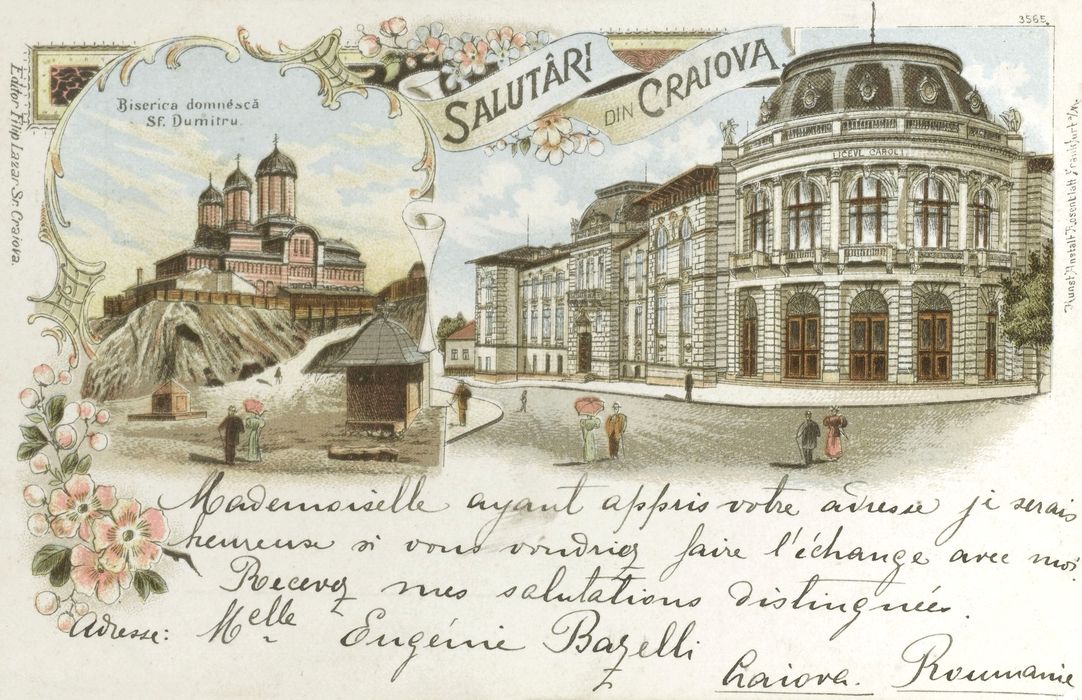 3565.
SALUTÂRI
DIN CRAIOVA
Biserica domnéscă
Sf. Dumitru.
LICEUL CAROL I
Editor Filip Lazar Sr. Craiova.
Kunst Anstalt Rosenblatt Frankfurt a/M.
Mademoiselle ayant appris votre adresse je serais
heureuse si vous voudriez faire l'échange avec moi
Recevez mes salutations distinguées.
Adresse: Melle Eugénie Bazelli
Craiova. Roumanie